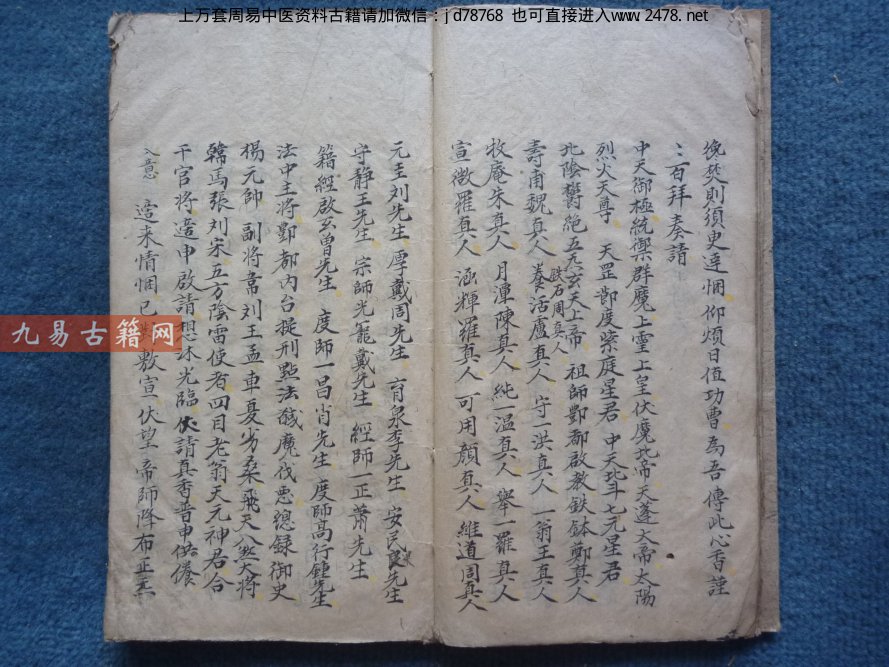 上万套周易中医资料古籍请加微信：jd78768 也可直接进入www.2478.net
焚則須臾達悃仰煩日值功曹為吾傳此心香謹
百拜奏請
中天御極統禦群魔上靈上皇伏魔北帝天蓬大帝太陽
烈火天尊 天罡節度紫庭星君 中天北斗七元星君
北陰酆絕五炁玄天上帝 祖師酆都啟教鉄鉢鄭真人
壽甫魏真人 養活盧真人 守一洪真人 一翁王真人
鉄石周真人
牧庵朱真人 月潭陳真人 純一溫真人 舉一羅真人
宣微羅真人 涵輝羅真人 可用顏真人 維道周真人
元圭刘先生 厚戴周先生 育泉李先生 安民先生
守静王先生 宗師光籠戴先生 經師一正蕭先生
籍經啟玄曾先生 度師一昌肖先生 度師高行鍾先生
法中主將酆都內台提刑點法馘魔伐惡總錄御史
楊元帥 副將當刘王孟車夏劣桑飛天八煞大將
韓馬張刘宋五方陰雷使者四目老翁天元神君合
干官將遥申啟請想沐光臨伏請真香普申供養
入意 適来情悃已敷宣伏望帝師降布正
九易古籍网